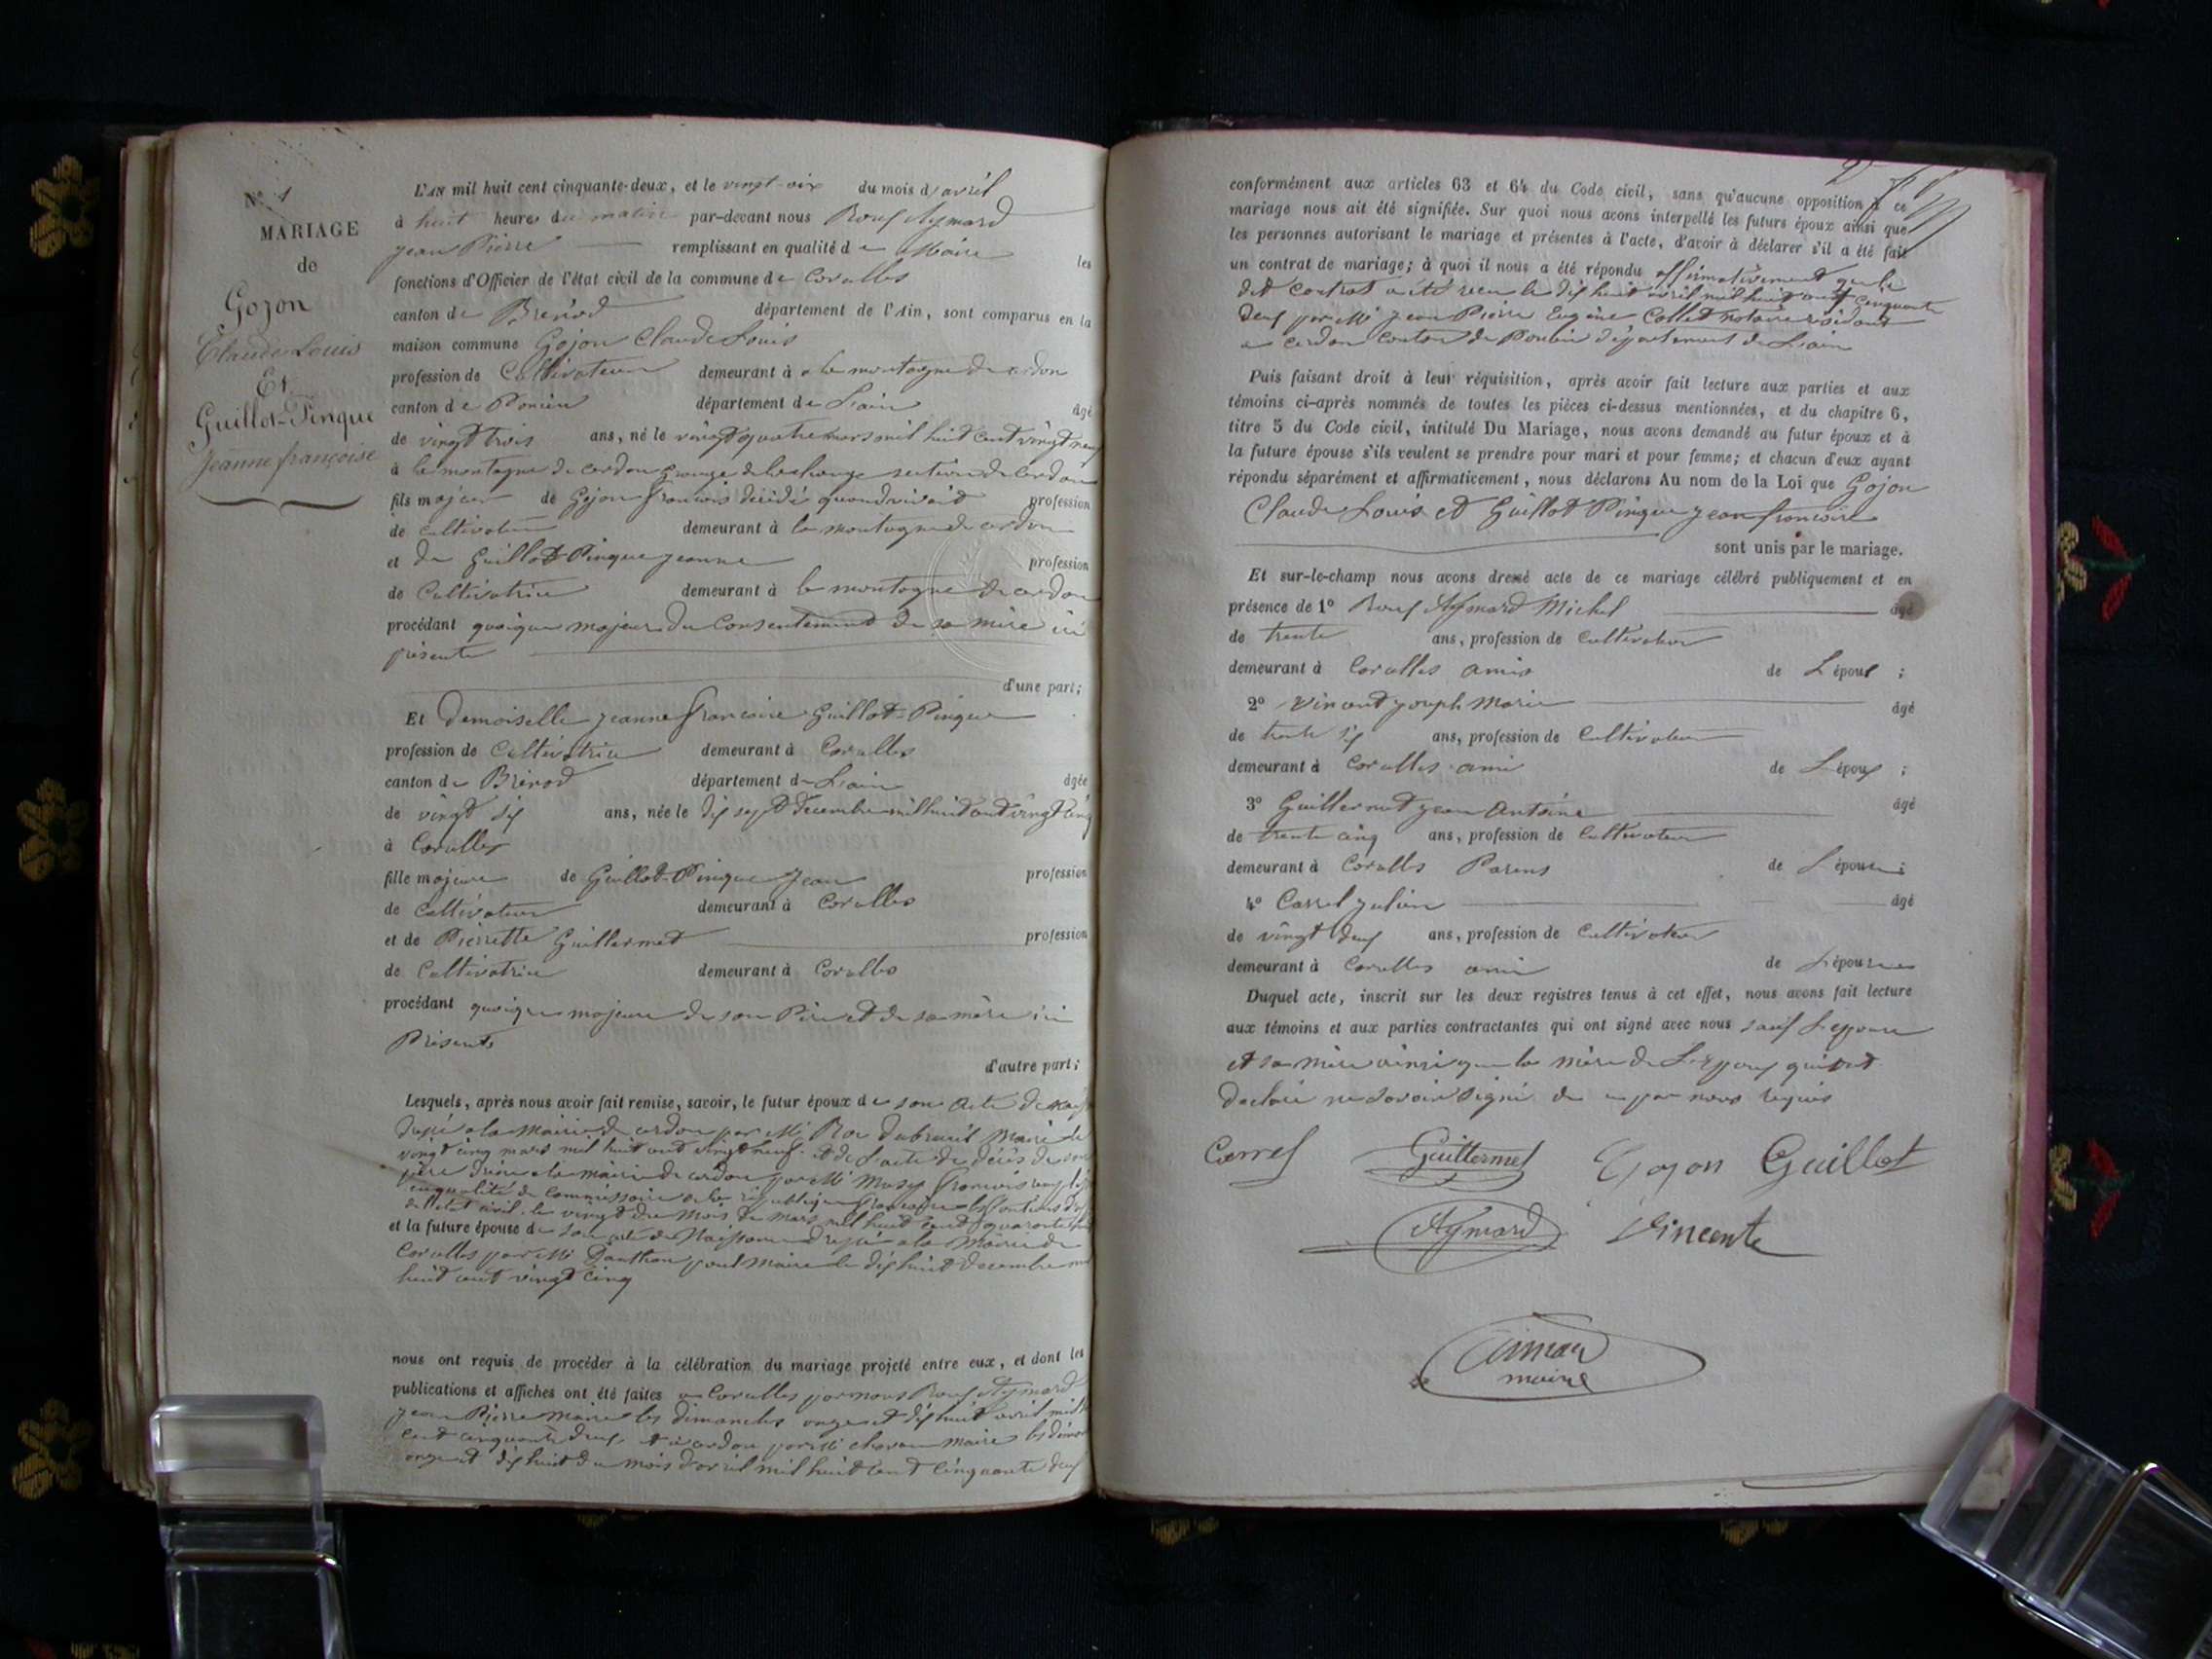 N° 1
MARIAGE
de
Gojon
Claude Louis
Et
Guillot-Pinque
Jeanne françoise
L'AN mil huit cent cinquante-deux, et le vingt-six du mois d'avril
à huit heures du matin par-devant nous Roux Aymard
Jean Pierre remplissant en qualité de Maire les
fonctions d'Officier de l'état civil de la commune de Corcelles
canton de Brénod département de l'Ain, sont comparus en la
maison commune Gojon Claude Louis
profession de Cultivateur demeurant à la montagne de cerdon
canton de Poncin département de L'ain âgé
de vingt trois ans, né le vingt quatre mars mil huit cent vingt neuf
à la montagne de cerdon Grange de section de Cerdon
fils majeur de Gojon francois décédé quand vivait profession
de cultivateur demeurant à la montagne de cerdon
et de Guillot-Pinque Jeanne profession
de Cultivatrice demeurant à la montagne de cerdon
procédant quoique majeur du Consentement de sa mère ici
présente
d'une part;
Et demoiselle Jeanne francoise Guillot-Pinque
profession de Cultivatrice demeurant à Corcelles
canton de Brénod département de L'ain âgée
de vingt six ans, née le dix sept decembre mil huit cent vingt cinq
à Corcelles
fille majeure de Guillot-Pinque Jean profession
de Cultivateur demeurant à Corcelles
et de Pierrette Guillermet profession
de Cultivatrice demeurant à Corcelles
procédant quoique majeure de son Père et de sa mère ici
Présents
d'autre part;
Lesquels, après nous avoir fait remise, savoir, le futur époux de son acte de
a la Mairie de cerdon par Mr Dubreuil Maire le
vingt cinq mars mil huit cent vingt neuf et de L'acte de décès de son
père a la mairie de cerdon par Mr francois
en qualité de Commissaire de la république francaise
de l'état civil le vingt du Mois de mars mil huit cent quarante
et la future épouse de son acte de Naissance a la Mairie de
Corcelles par Mr maire le dix huit decembre mil
huit cent vingt cinq
nous ont requis de procéder à la célébration du mariage projeté entre eux, et dont les
publications et affiches ont été faites a Corcelles par nous Roux Aymard
Jean Pierre maire les dimanches onze et dix huit avril mil
cent cinquante deux et à cerdon par Mr maire les
onze et dix huit du mois d'avril mil huit cent cinquante deux
conformément aux articles 63 et 64 du Code civil, sans qu'aucune opposition à ce
mariage nous ait été signifiée. Sur quoi nous avons interpellé les futurs époux ainsi que
les personnes autorisant le mariage et présentes à l'acte, d'avoir à déclarer s'il a été fait
un contrat de mariage; à quoi il nous a été répondu affirmativement que le
dit contrat a été recu le dix huit avril mil huit cent cinquante
deux par Mr Jean Pierre Eugène Collet notaire résidant
a cerdon canton de Poncin département de L'ain
Puis faisant droit à leur réquisition, après avoir fait lecture aux parties et aux
témoins ci-après nommés de toutes les pièces ci-dessus mentionnées, et du chapitre 6,
titre 5 du Code civil, intitulé Du Mariage, nous avons demandé au futur époux et à
la future épouse s'ils veulent se prendre pour mari et pour femme; et chacun d'eux ayant
répondu séparément et affirmativement, nous déclarons Au nom de la Loi que Gojon
Claude Louis et Guillot Pinque Jeanne francoise
sont unis par le mariage.
Et sur-le-champ nous avons dressé acte de ce mariage célébré publiquement et en
présence de 1° Roux Aymard Michel âgé
de trente ans, profession de Cultivateur
demeurant à Corcelles amis de L'époux ;
2° Vincent Joseph Marie âgé
de trente six ans, profession de Cultivateur
demeurant à Corcelles ami de L'époux ;
3° Guillermet Jean Antoine âgé
de trente cinq ans, profession de Cultivateur
demeurant à Corcelles Parens de L'épouse ;
4° Carrel Julien âgé
de vingt deux ans, profession de Cultivateur
demeurant à Corcelles ami de L'épouse
Duquel acte, inscrit sur les deux registres tenus à cet effet, nous avons fait lecture
aux témoins et aux parties contractantes qui ont signé avec nous sauf L'epouse
et sa mère ainsi que la mère de L'epoux qui ont
declaré ne savoir signé de ce par nous requis
Carrel Guillermet Gojon Guillot
Aymard Vincent
aimar
maire